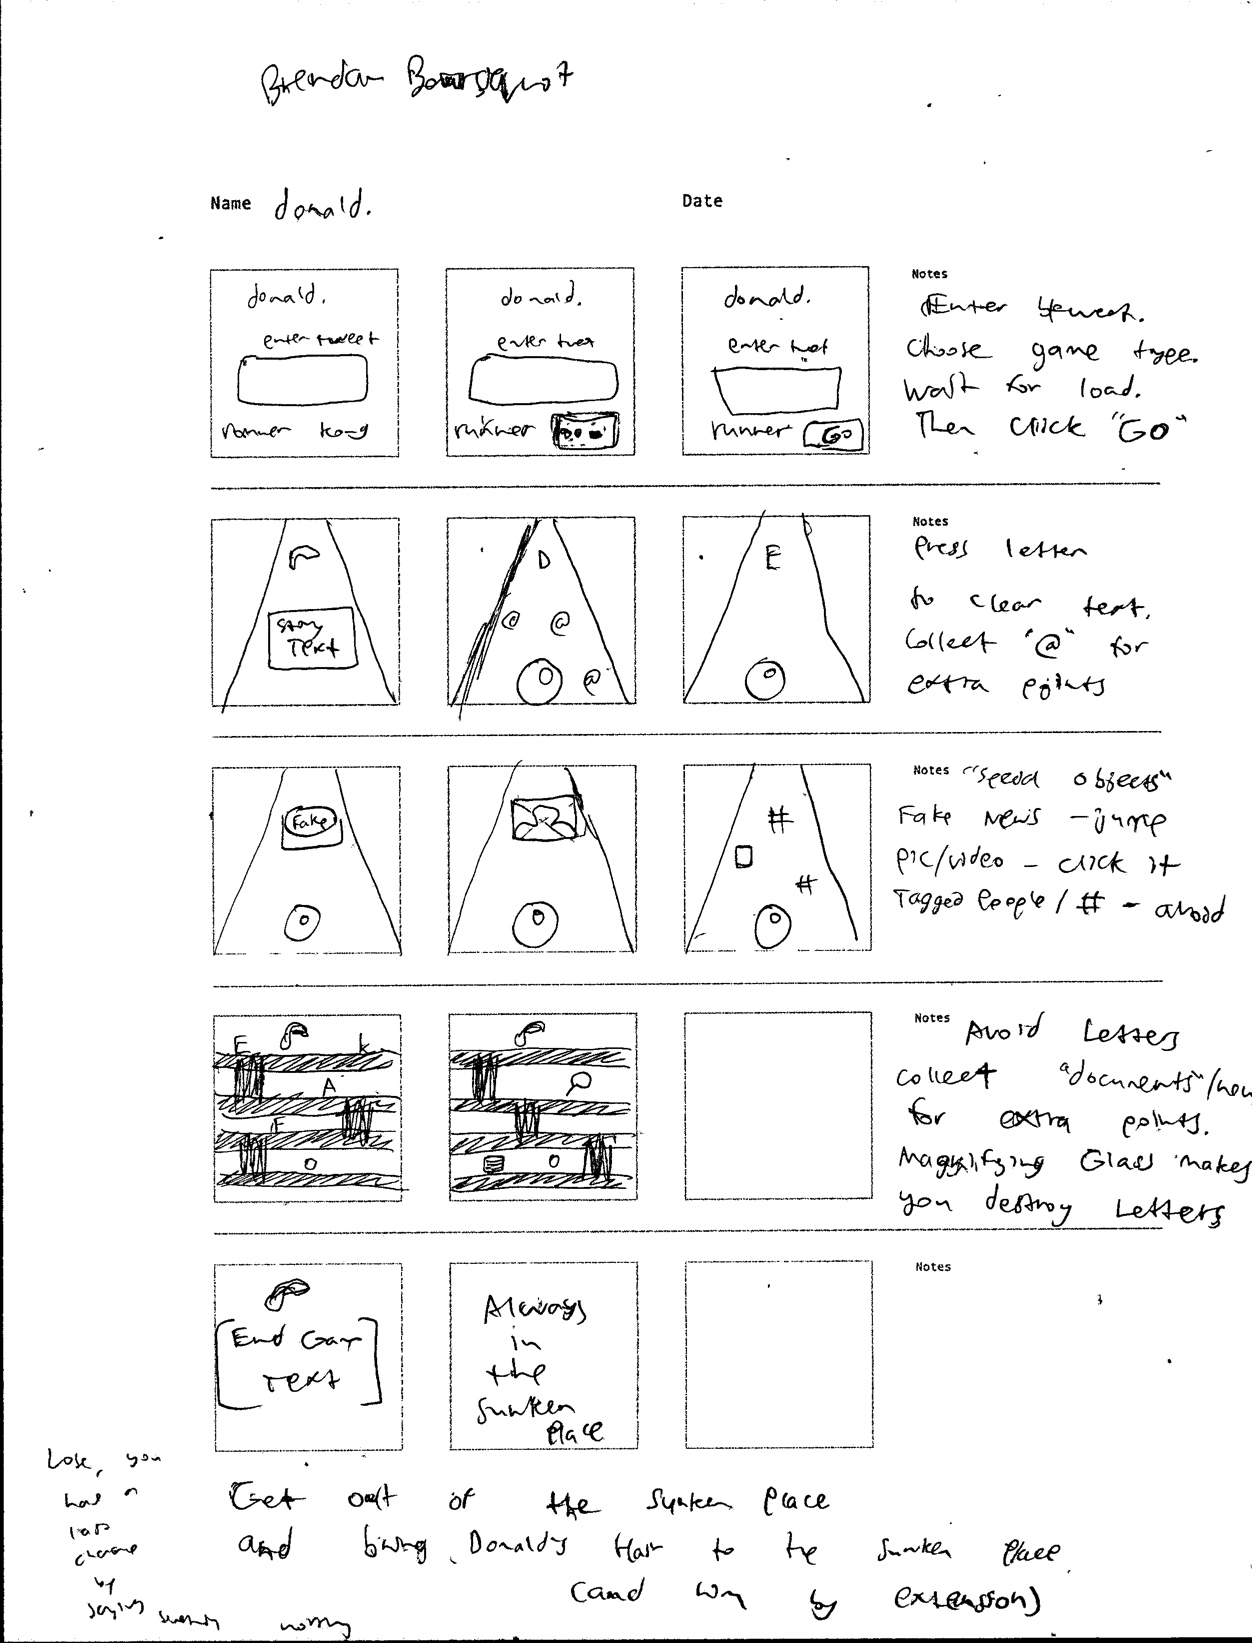 Brendan
Name donald.
Date
donald.
enter tweet
runner kong
donald.
enter twet
runner
donald.
enter twet
runner Go
Notes
Enter tweet.
Choose game type.
wait for load.
Then click "GO"
Story
Text
D
@ @
@
E
Notes
Press letter
to clear text.
Collect "@" for
extra points
Fake
#
#
Notes "Speed objects"
Fake News - jump
pic/video - click it
Tagged People / # - avoid
E K
A
F
Notes Avoid Letters
collect "documents"/
for extra points.
Magnifying Glass makes
you destroy Letters
[End Gam
Text]
Always
in
the
sunken
place
Notes
Lose, you
has a
last
chance
by
saying
Get out of the sunken place
and bring Donald's Hair to the sunken place
(and win by extension)